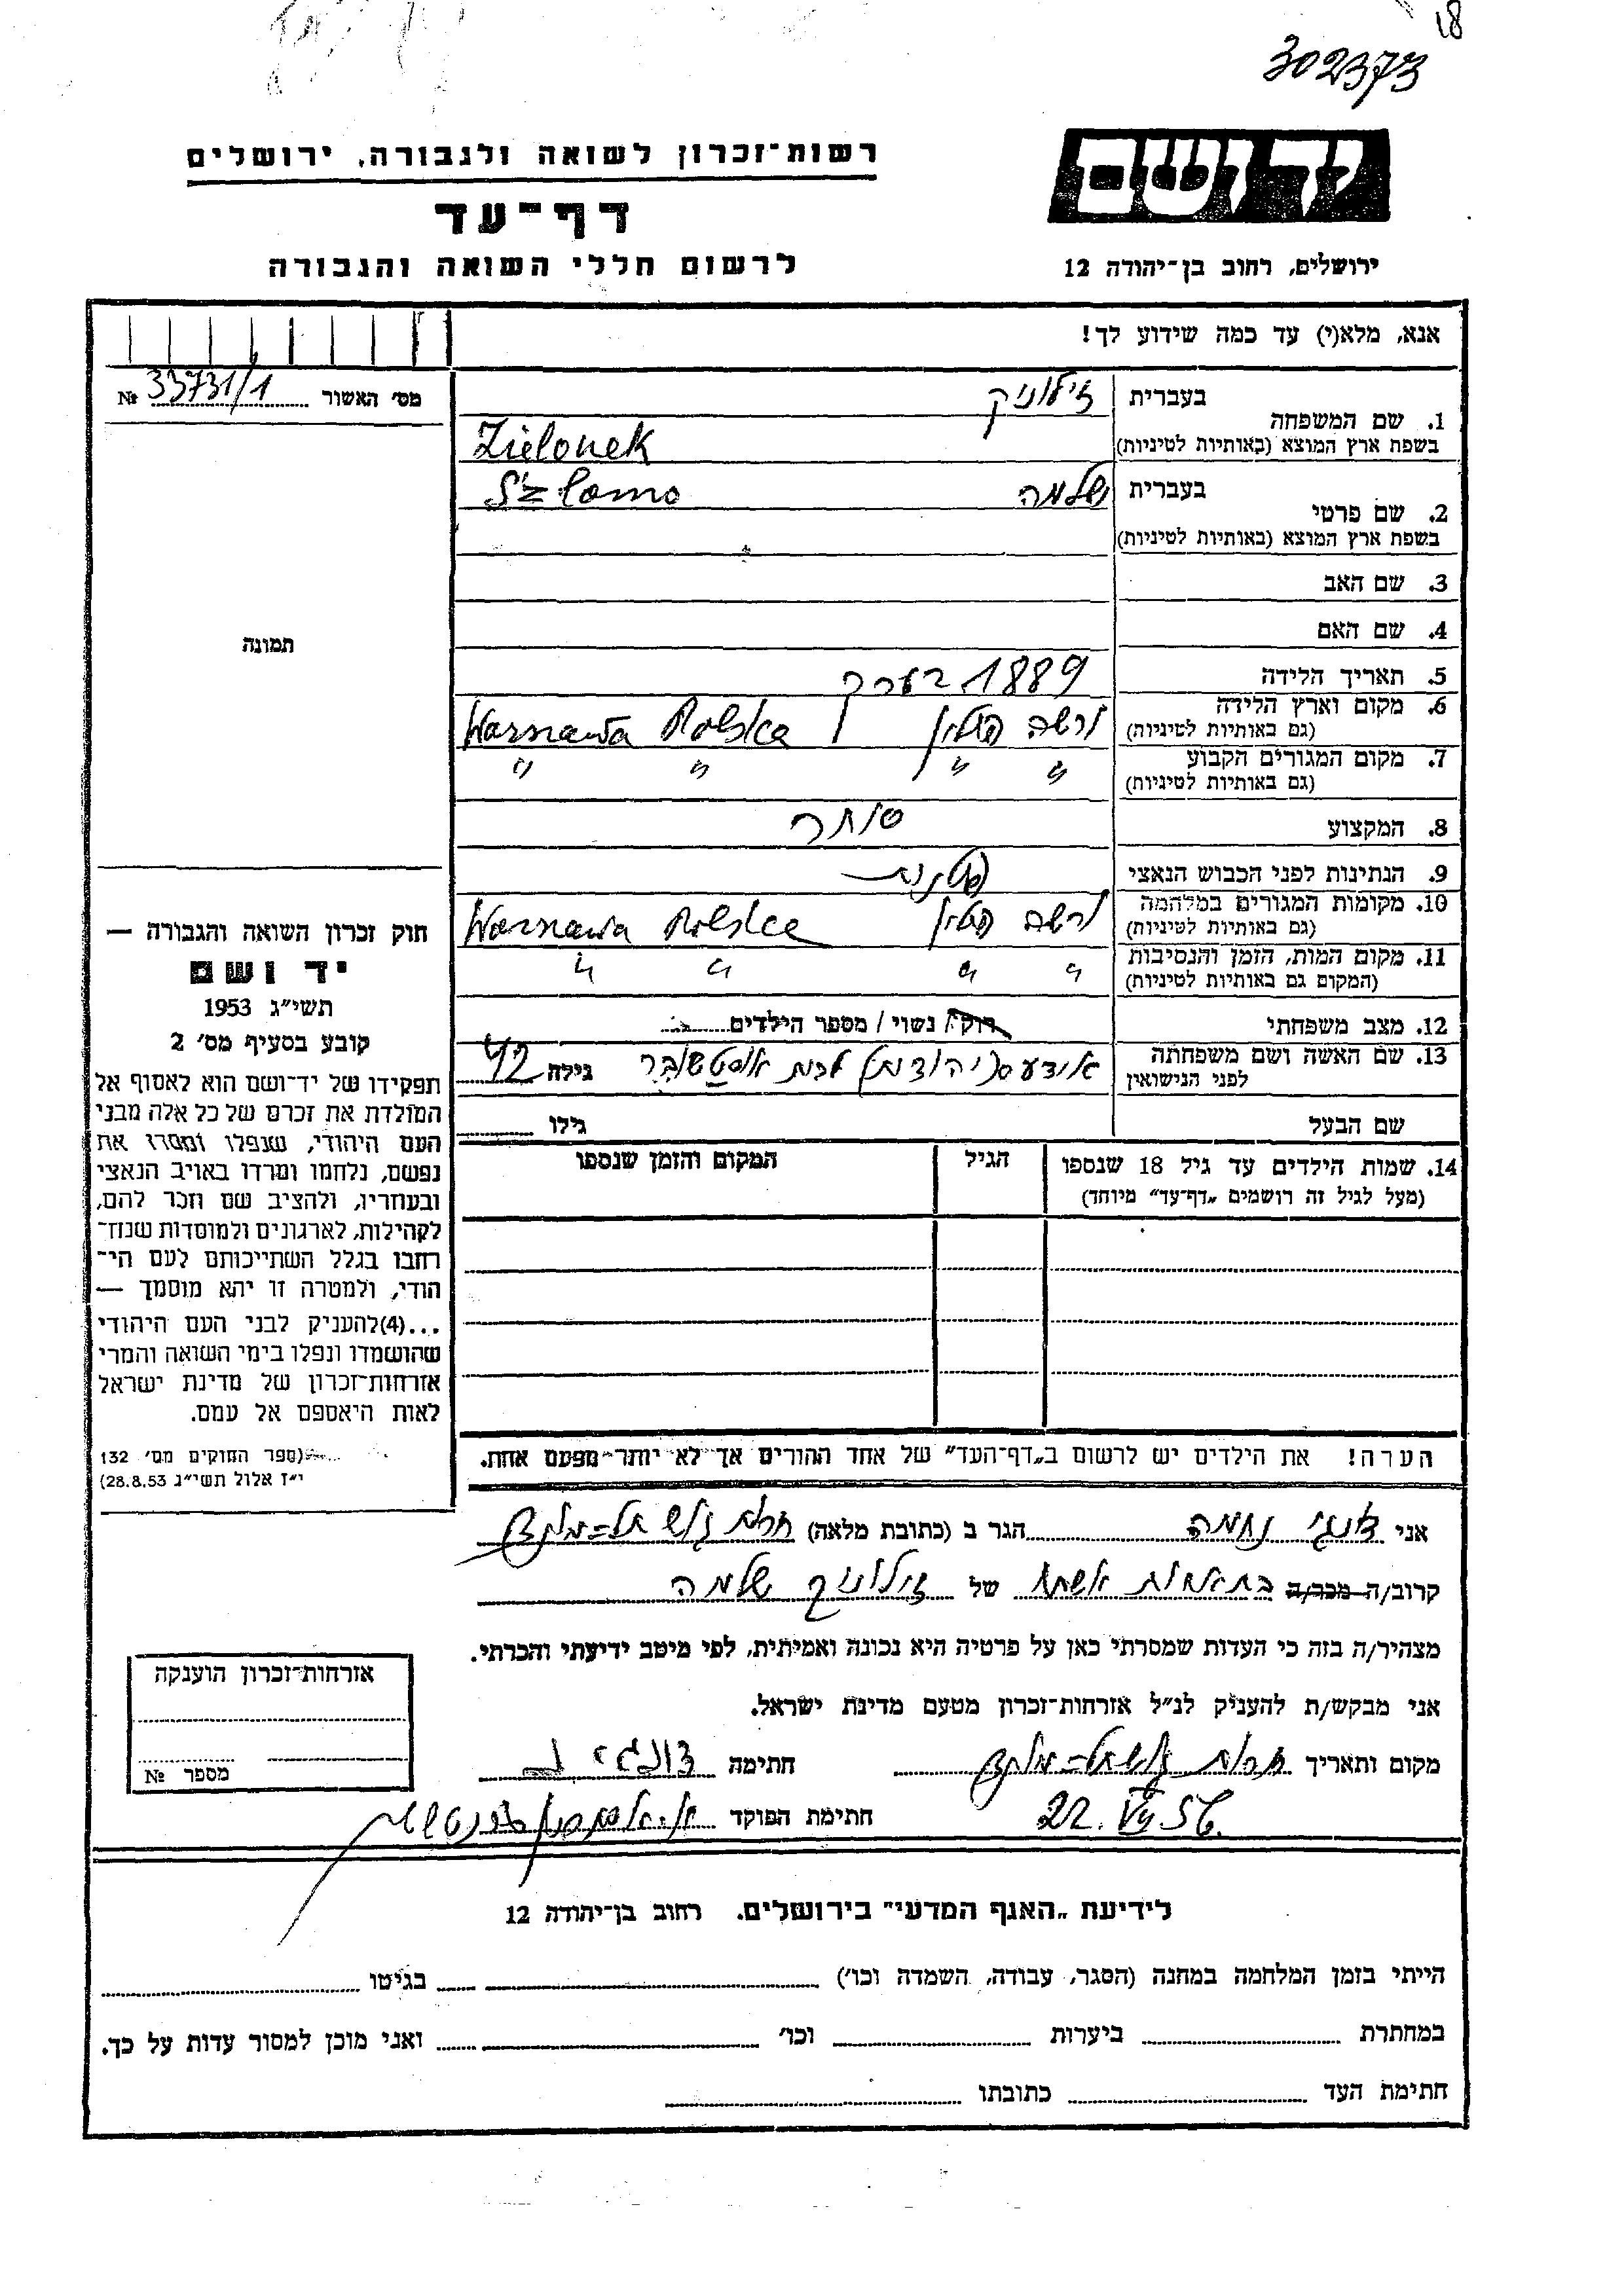 18
302373
יד ושם
רשות־זכרון לשואה ולגבורה, ירושלים
דף־עד
לרשום חללי השואה והגבורה
ירושלים, רחוב בן־יהודה 12
אנא, מלא(י) עד כמה שידוע לך!
מס׳ האשור 33731/1 №
תמונה
1. שם המשפחה
בעברית זילוניק
בשפת ארץ המוצא (באותיות לטיניות) Zielonek
2. שם פרטי
בעברית שלמה
Szlomo
בשפת ארץ המוצא (באותיות לטיניות)
3. שם האב
4. שם האם
5. תאריך הלידה 1889 בערך
6. מקום וארץ הלידה ורשה פולין Warszawa Polska
(גם באותיות לטיניות)
7. מקום המגורים הקבוע " " " "
(גם באותיות לטיניות)
8. המקצוע סוחר
9. הנתינות לפני הכבוש הנאצי פולנית
10. מקומות המגורים במלחמה ורשה פולין Warszawa Polska
(גם באותיות לטיניות)
11. מקום המות, הזמן והנסיבות " " " "
(המקום גם באותיות לטיניות)
12. מצב משפחתי רוק/ נשוי / מספר הילדים
13. שם האשה ושם משפחתה
לפני הנישואין
(יהודית) לבית גילה 42
שם הבעל גילו
14. שמות הילדים עד גיל 18 שנספו
(מעל לגיל זה רושמים „דף־עד” מיוחד)
הגיל
המקום והזמן שנספו
הערה! את הילדים יש לרשום ב„דף־העד” של אחד ההורים אך לא יותר מפעם אחת.
חוק זכרון השואה והגבורה —
יד ושם
תשי״ג 1953
קובע בסעיף מס׳ 2
תפקידו של יד־ושם הוא לאסוף אל
המולדת את זכרם של כל אלה מבני
העם היהודי, שנפלו ומסרו את
נפשם, נלחמו ומרדו באויב הנאצי
ובעוזריו, ולהציב שם וזכר להם,
לקהילות, לארגונים ולמוסדות שנח־
רבו בגלל השתייכותם לעם הי־
הודי, ולמטרה זו יהא מוסמך —
...(4)להעניק לבני העם היהודי
שהושמדו ונפלו בימי השואה והמרי
אזרחות־זכרון של מדינת ישראל
לאות היאספם אל עמם.
(ספר החוקים מס׳ 132
י״ז אלול תשי״ג 28.8.53)
אני נחמה הגר ב (כתובת מלאה)
קרוב/ה מכר/ה של זילוניק שלמה
מצהיר/ה בזה כי העדות שמסרתי כאן על פרטיה היא נכונה ואמיתית, לפי מיטב ידיעתי והכרתי.
אני מבקש/ת להעניק לנ״ל אזרחות־זכרון מטעם מדינת ישראל.
מקום ותאריך חתימה
22.VII 56. חתימת הפוקד
אזרחות־זכרון הוענקה
מספר №
לידיעת „האגף המדעי” בירושלים. רחוב בן־יהודה 12
הייתי בזמן המלחמה במחנה (הסגר, עבודה, השמדה וכו׳) בגיטו
במחתרת ביערות וכו׳ ואני מוכן למסור עדות על כך.
חתימת העד כתובתו